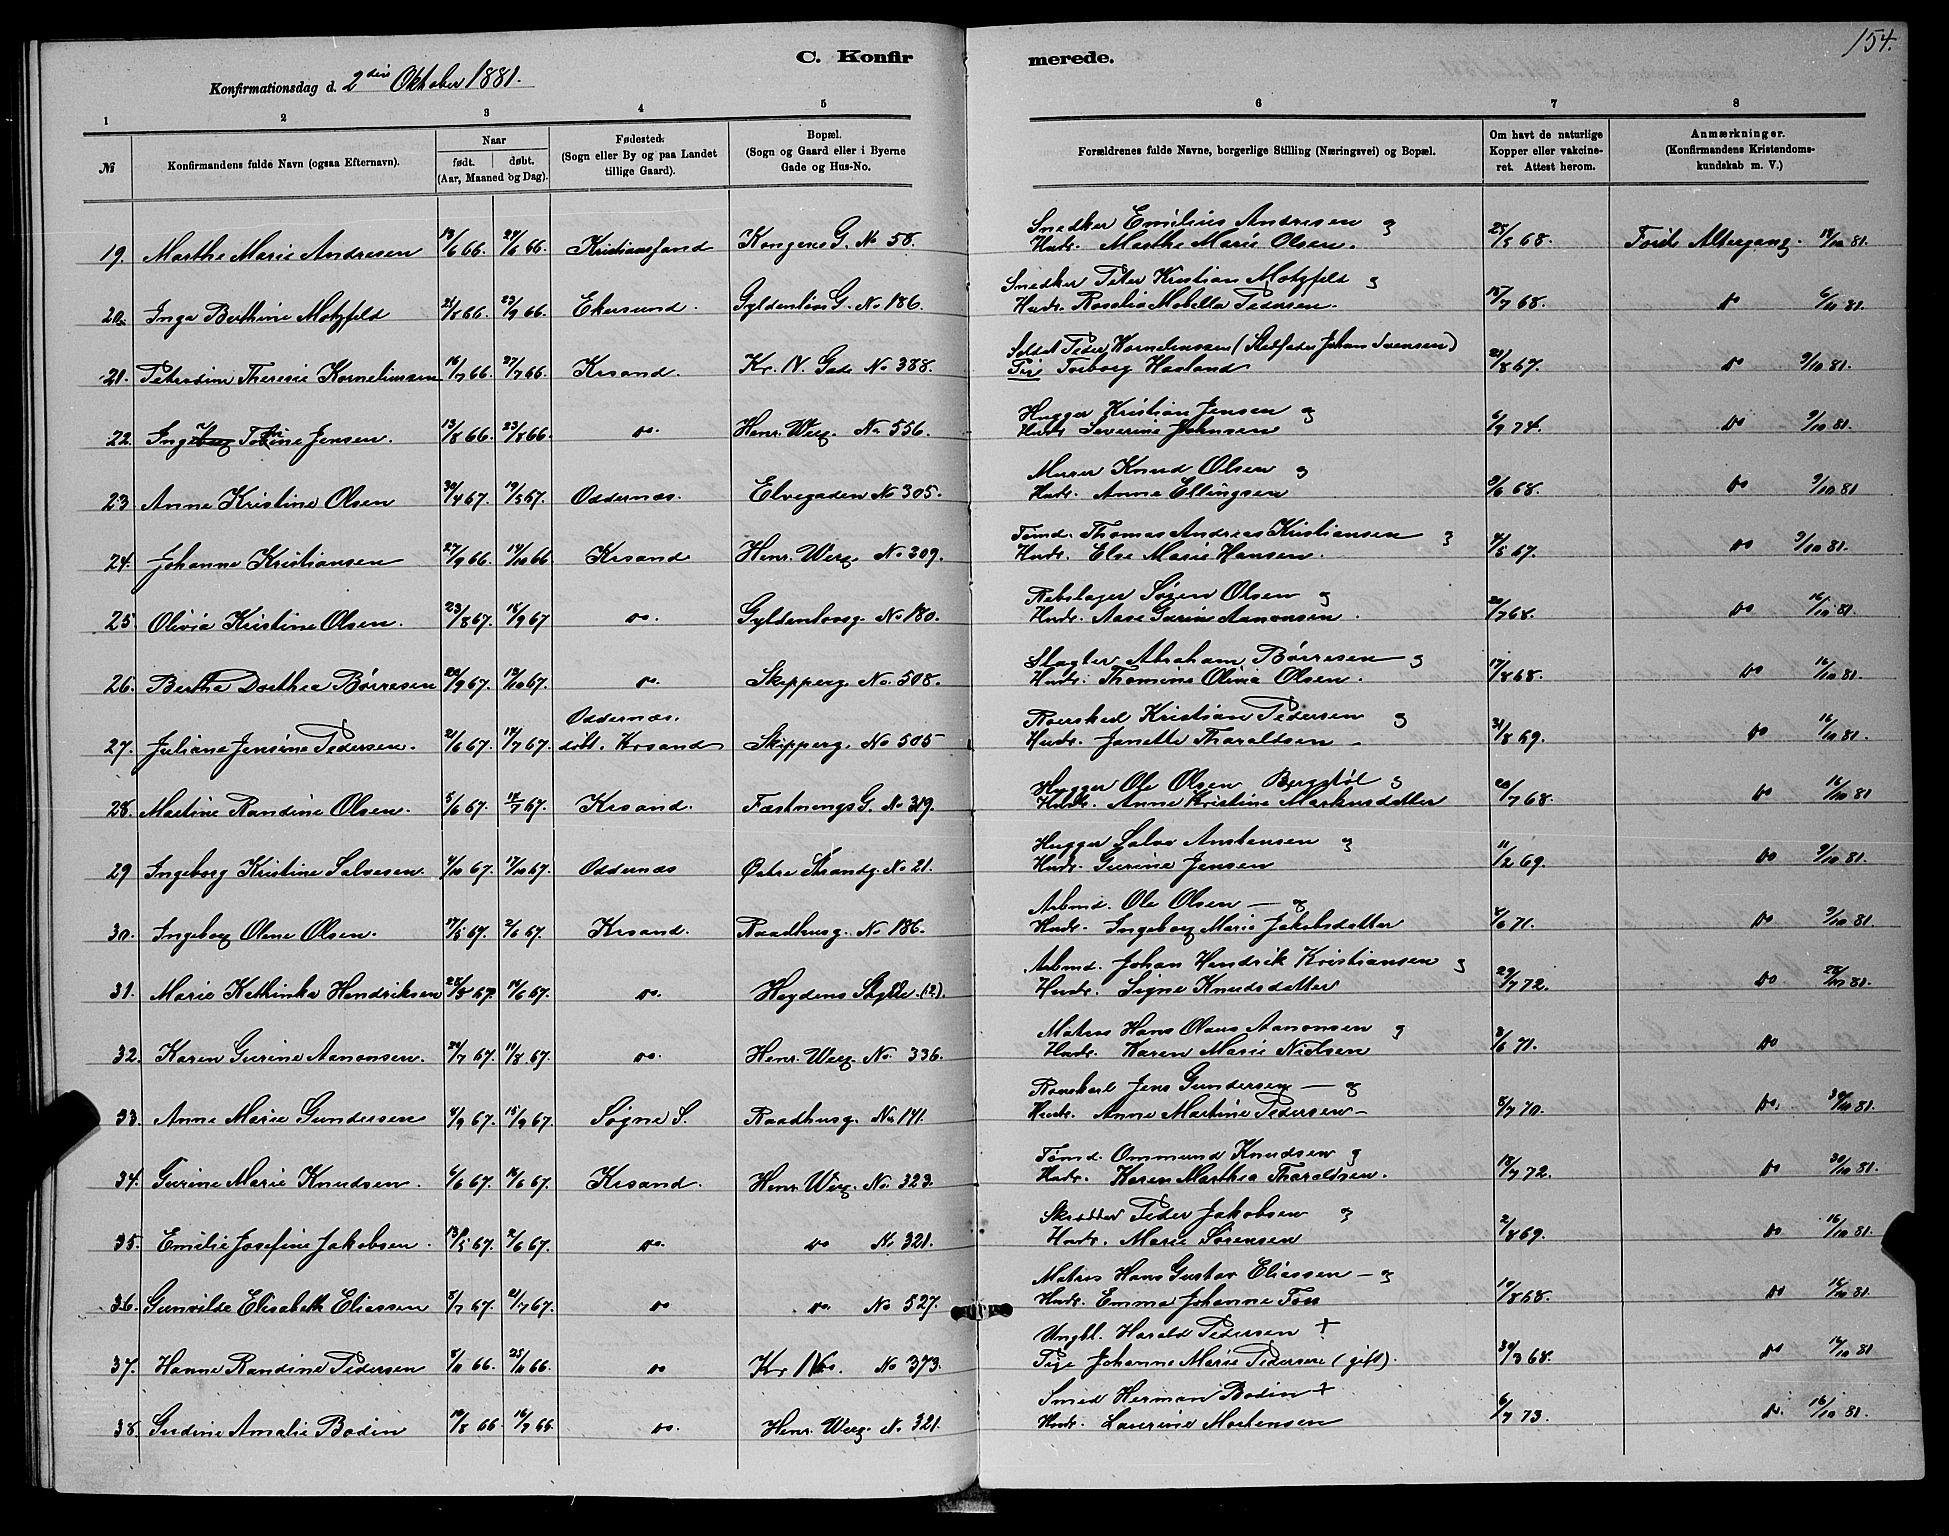 154.
C. Konfirmerede.
Konfirmationsdag d. 2den Oktober 1881.
1 2 3 4 5 6 7 8
№ Konfirmandens fulde Navn (ogsaa Efternavn). Naar født. døbt. (Aar, Maaned og Dag). Fødested: (Sogn eller By og paa Landet tillige Gaard). Bopæl. (Sogn og Gaard eller i Byerne Gade og Hus-No. Forældrenes fulde Navne, borgerlige Stilling (Næringsvei) og Bopæl. Om havt de naturlige Kopper eller vakcineret. Attest herom. Anmærkninger. (Konfirmandens Kristendomskundskab m. V.)
Snedker Emilius Andresen og
19. Marthe Marie Andresen 13/6 66. 24/6 66. Kristianssand Kongens G. No 58. Hustr. Marthe Marie Olsen. 25/5 68. Altergang. 81.
Snedker Peter Kristian Motzfeld og
20. Inga Berthine Motzfeld 21/8 66. 23/9 66. Ekersund. Gyldenløvs G. No 186. Hustr. Rosalia Mobella Pedersen. 15/7 68. do 6/10 81.
Soldat Peder Kornelinssen (Stedfader Johan Svensen)
21. Petrodine Theresie Kornelinssen 16/7 66. 27/7 66. Krsand. Kr. IV. Gade No 388. Pie Torborg Haaland 21/8 67. do 9/10 81.
Hugger Kristian Jensen og
22. Jensen. 13/8 66. 23/8 66. do. Henr. Werg. No 556. Hustr. Severine Johnsen 6/9 74. do 9/10 81.
Murer Knud Olsen og
23. Anne Kristine Olsen 30/4 67. 19/5 67. Oddernæs. Elvegaden No 305. Hustr. Anne Ellingsen 9/6 68. do 9/10 81
Tømd. Thomas Andreas Kristiansen og
24. Johanne Kristiansen 27/9 66. 14/10 66 Krsand Henr. Werg. No 309. Hustr. Else Marie Hansen. 4/5 67. do 9/10 81.
Rebslager Søren Olsen og
25. Olivia Kristine Olsen. 23/8 67. 15/9 67 do. Gyldenlovsg. No 180. Hustr. Aase Gurine Aanonsen. 20/7 68. do 16/10 81.
Slagter Abraham Børresen og
26. Bertha Dorthea Børresen 20/9 67. 13/10 67. do. Skipperg. No. 508. Hustr. Thomine Olivia Olsen. 17/8 68. do 16/10 81.
Oddernæs. Roerskarl Kristian Pedersen og
27. Juliane Jensine Pedersen. 21/6 67. 14/7 67. døbt. Krsand Skipperg. No 505 Hustr. Janette Tharaldsen 31/8 69. do 16/10 81.
Hugger Ole Olsen Bergstøl og
28. Martine Randine Olsen. 5/6 67. 14/7 67. Krsand. Fæstnings G. No 319. Hustr. Anne Kristine Markusdatter 20/7 68. do 16/10 81.
Hugger Salve Anstensen og
29 Ingeborg Kristine Salvesen. 4/10 67. 17/10 67. Oddernæs Østre Strandg. No 21. Hustr. Gurine Jensen 11/2 69. do 9/10 81.
Arbmd. Ole Olsen — og
30. Ingeborg Olene Olsen. 17/5 67. 2/6 67. Krsand. Raadhusg. No 186. Hustr. Ingeborg Marie Jakobsdatter 4/6 71. do 9/10 81.
Arbmd. Johan Hendrik Kristiansen og
31. Marie Kathinka Hendriksen 28/5 67. 16/6 67. do. Heydens (12). Hustr. Signe Knudsdatter 29/7 72. do 81.
Matros Hans Olaus Aanonsen og
32. Karen Gurine Aanonsen. 20/7 67. 11/8 67. do. Henr. Werg. No. 336. Hustr. Karen Marie Nielsen 3/6 71. do
Jens Gundersen — og
33. Anne Marie Gundersen 4/9 67. 15/9 67. Søgne S. Raadhusg. No 141. Hustr. Anne Martine Pedersen 5/7 70. do. 30/10 81.
Tømd. Ommund Knudsen og
34. Gurine Marie Knudsen. 6/6 67. 16/6 67. Krsand. Henr. Werg. No. 323. Hustr. Karen Marthea Tharaldsen. 19/7 72. do 30/10 81.
Skrædder Peder Jakobsen og
35. Emilie Josefine Jakobsen. 13/5 67. 2/6 67. do. do No 321. Hustr. Marie Sørensen 2/8 69. do 16/10 81.
Matros Hans Gustav Eliassen — og
36. Gunvilde Elisabeth Eliassen 8/7 67. 21/7 67. do do. No 527. Hustr. Emma Johanne Foss 19/8 68. do 16/10 81.
Ungkl. Harald Pedersen +
37. Hanne Randine Pedersen 8/11 66. 25/11 66. do Kr. IV No 373. Pige Johanne Marie Pedersen (gift). 30/3 68. do 16/10 81
Smed Herman Bodin +
38. Gudine Amalie Bodin 19/8 66 16/9 66. do. Henr. Werg. No 321. Hustr. Laurenze Mortensen 6/7 73. do 16/10 81.